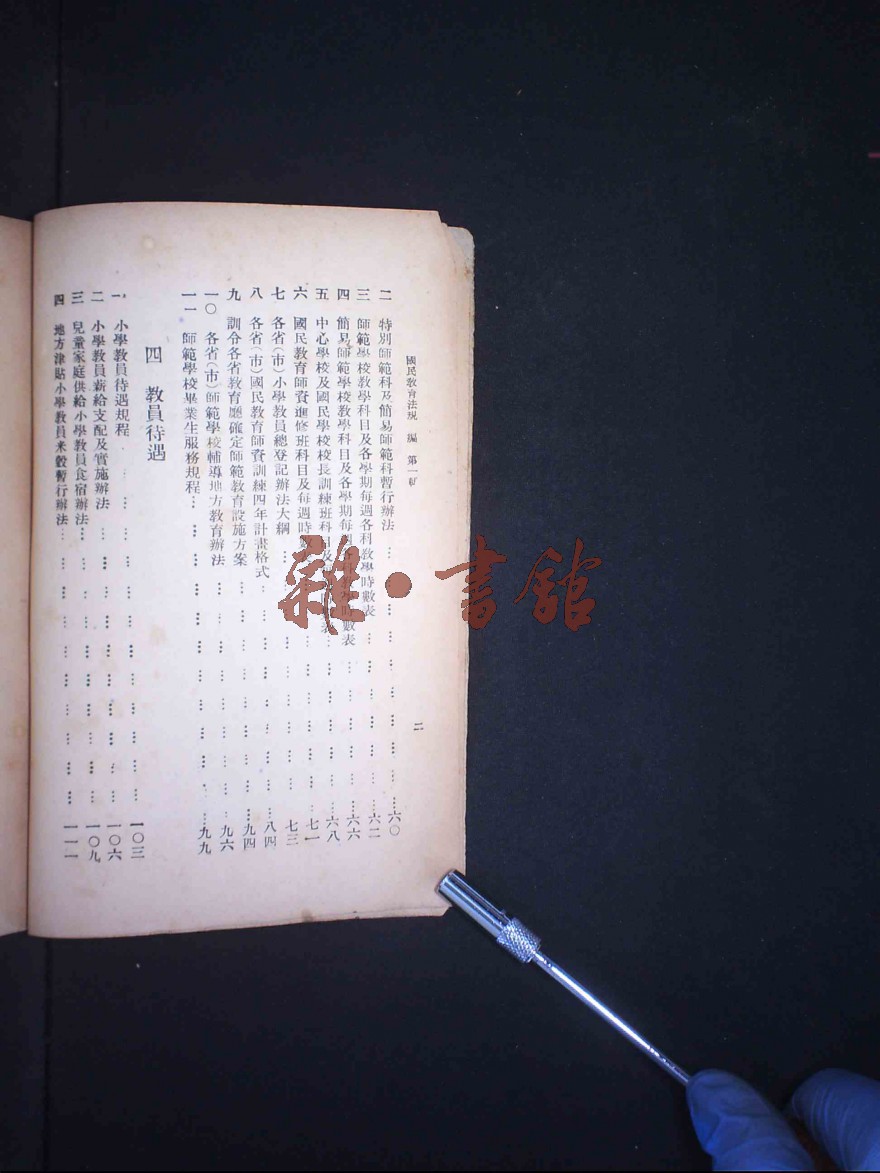 國民教育法規 編 第一
二
二 特別師範科及簡易師範科暫行辦法……六〇
三 師範學校教學科目及各學期每週各科教學時數表……六二
四 簡易師範學校教學科目及各學期每週各科教學時數表……六六
五 中心學校及國民學校校長訓練班科 及 表……六八
六 國民教育師資進修班科目及每週時數……七一
七 各省(市)小學教員總登記辦法大綱……七三
八 各省(市)國民教育師資訓練四年計畫格式……八四
九 訓令各省教育廳確定師範教育設施方案……九四
一〇 各省(市)師範學校輔導地方教育辦法……九六
一一 師範學校畢業生服務規程……九九
四 教員待遇
一 小學教員待遇規程……一〇三
二 小學教員薪給支配及實施辦法……一〇六
三 兒童家庭供給小學教員食宿辦法……一〇九
四 地方津貼小學教員米穀暫行辦法……一一一
雜·書館